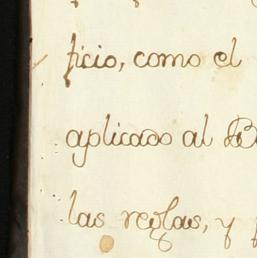 ficio, como el
aplicado al B
las reglas, y